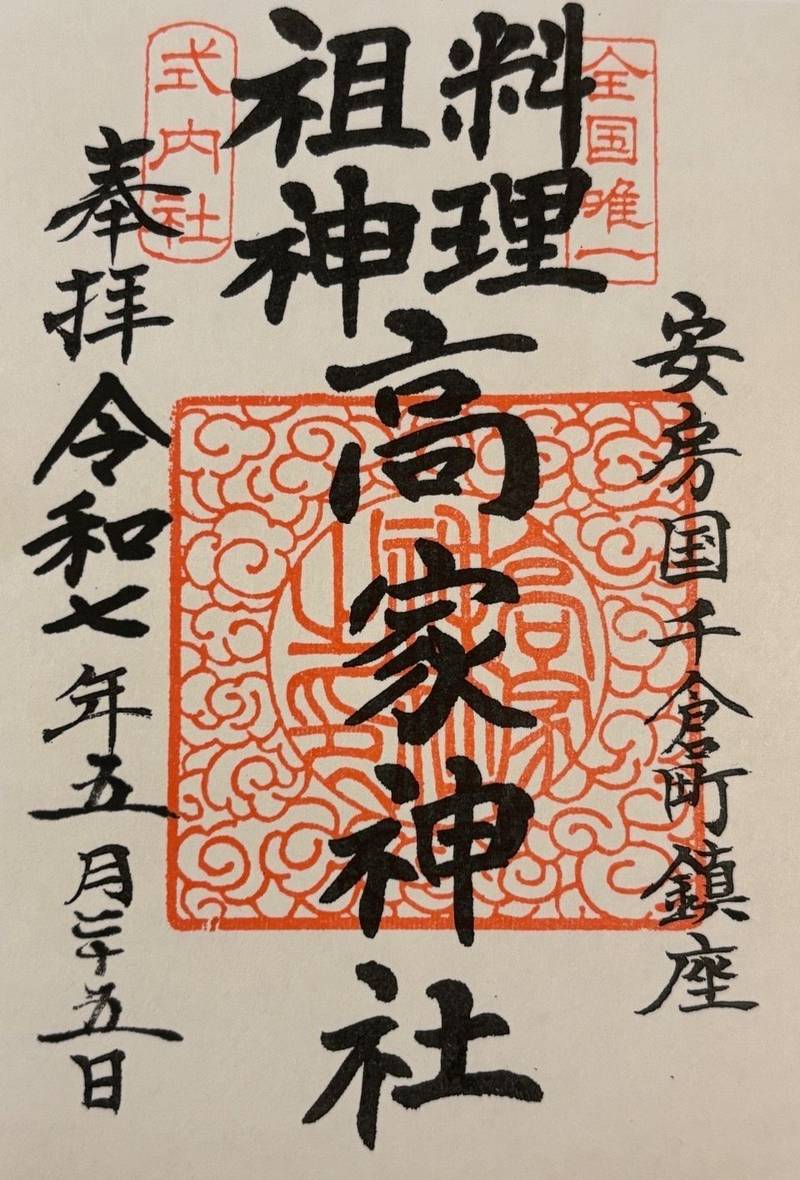 全国唯一
料理
祖神
式内社
安房国千倉町鎮座
高家神社
奉拝
令和七年五月二十五日